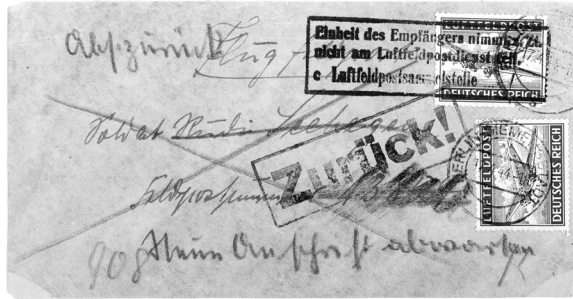 Abs. zurück
Flug
Einheit des Empfängers nimmt z. Zt.
nicht am Luftfeldpostdienst teil
Luftfeldpostsammelstelle
LUFTFELDPOST
DEUTSCHES REICH
Soldat Rudi
Zurück!
BERLIN
LUFTFELDPOST
DEUTSCHES REICH
Feldpostnummer
908 Neue Anschrift abwarten